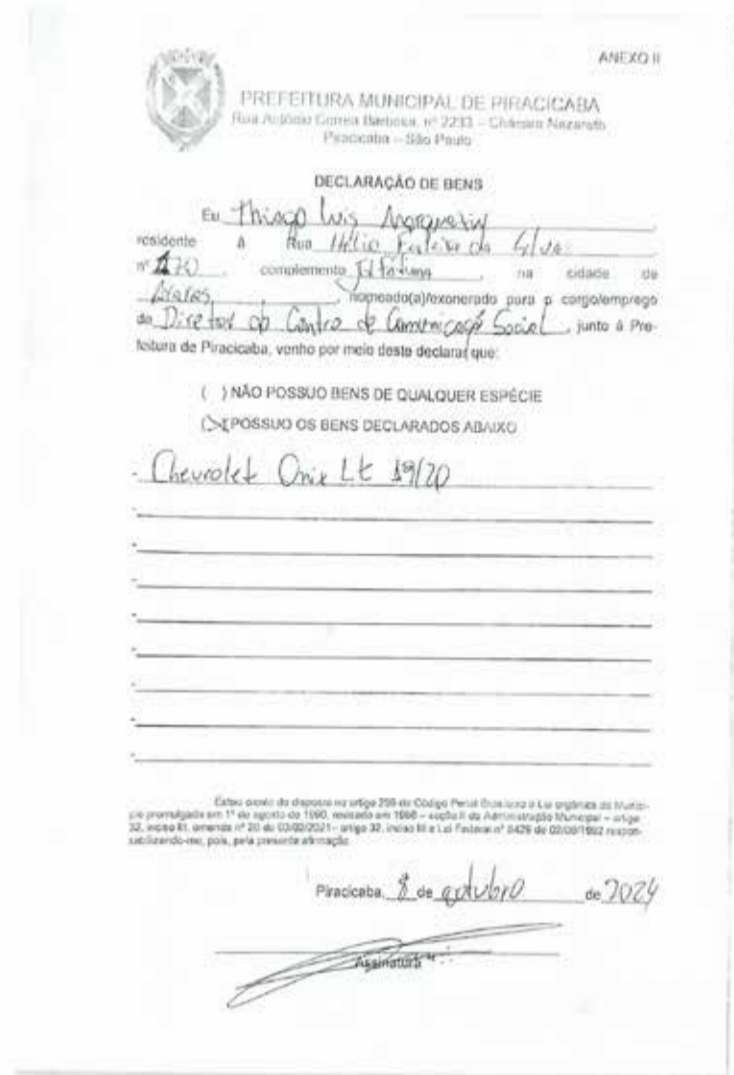 ANEXO II
PREFEITURA MUNICIPAL DE PIRACICABA
Rua Antônio Correa Barbosa, nº 2233 – Chácara Nazareth
Piracicaba – São Paulo
DECLARAÇÃO DE BENS
Eu Thiago Luis
residente à Rua Hélio da Silva
nº 170, complemento, na cidade de
Araras, nomeado(a)/exonerado para o cargo/emprego
de Diretor do Centro de Comunicação Social, junto à Pre-
feitura de Piracicaba, venho por meio deste declarar que:
( ) NÃO POSSUO BENS DE QUALQUER ESPÉCIE
(X) POSSUO OS BENS DECLARADOS ABAIXO
- Chevrolet Onix Lt 19/20
-
-
-
-
-
-
-
-
Estou ciente do disposto no artigo 299 do Código Penal Brasileiro e Lei orgânica do Municí-
pio promulgada em 1º de agosto de 1990, revisada em 1996 – seção II da Administração Municipal – artigo
32, inciso III, emenda nº 20 de 03/02/2021 – artigo 32, inciso III e Lei Federal nº 8429 de 02/06/1992 respon-
sabilizando-me, pois, pela presente afirmação.
Piracicaba, 8 de outubro de 2024
Assinatura